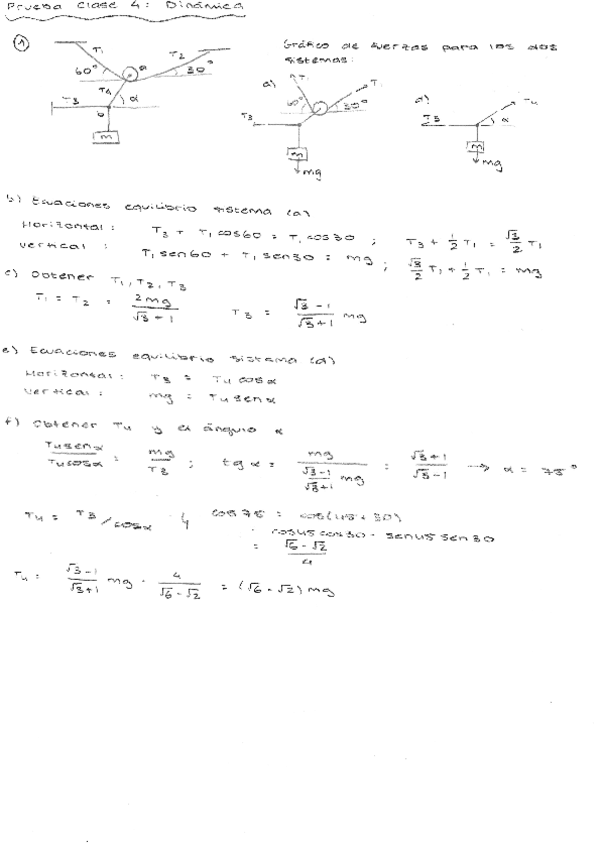 Prueba clase 4: Dinámica
① T₁ T₂ 60° a 30° T₄ T₃ α b m
Gráfico de fuerzas para los dos
sistemas:
a) T₁ T₁ 60° 30° T₃ m mg
d) T₃ T₄ α m mg
b) Ecuaciones equilibrio sistema (a)
Horizontal: T₃ + T₁ cos60 = T₁ cos30 ; T₃ + 1/2 T₁ = √3/2 T₁
Vertical: T₁ sen60 + T₁ sen30 = mg ; √3/2 T₁ + 1/2 T₁ = mg
c) Obtener T₁, T₂, T₃
T₁ = T₂ = 2mg/(√3+1) T₃ = (√3-1)/(√3+1) mg
e) Ecuaciones equilibrio sistema (d)
Horizontal: T₃ = T₄ cosα
Vertical: mg = T₄ senα
f) Obtener T₄ y el ángulo α
T₄ senα/T₄ cosα = mg/T₃ ; tg α = mg/((√3-1)/(√3+1) mg) = (√3+1)/(√3-1) → α = 75°
T₄ = T₃/cosα y cos75 = cos(45+30)
= cos45 cos30 - sen45 sen30
= (√6-√2)/4
T₄ = (√3-1)/(√3+1) mg · 4/(√6-√2) = (√6-√2) mg